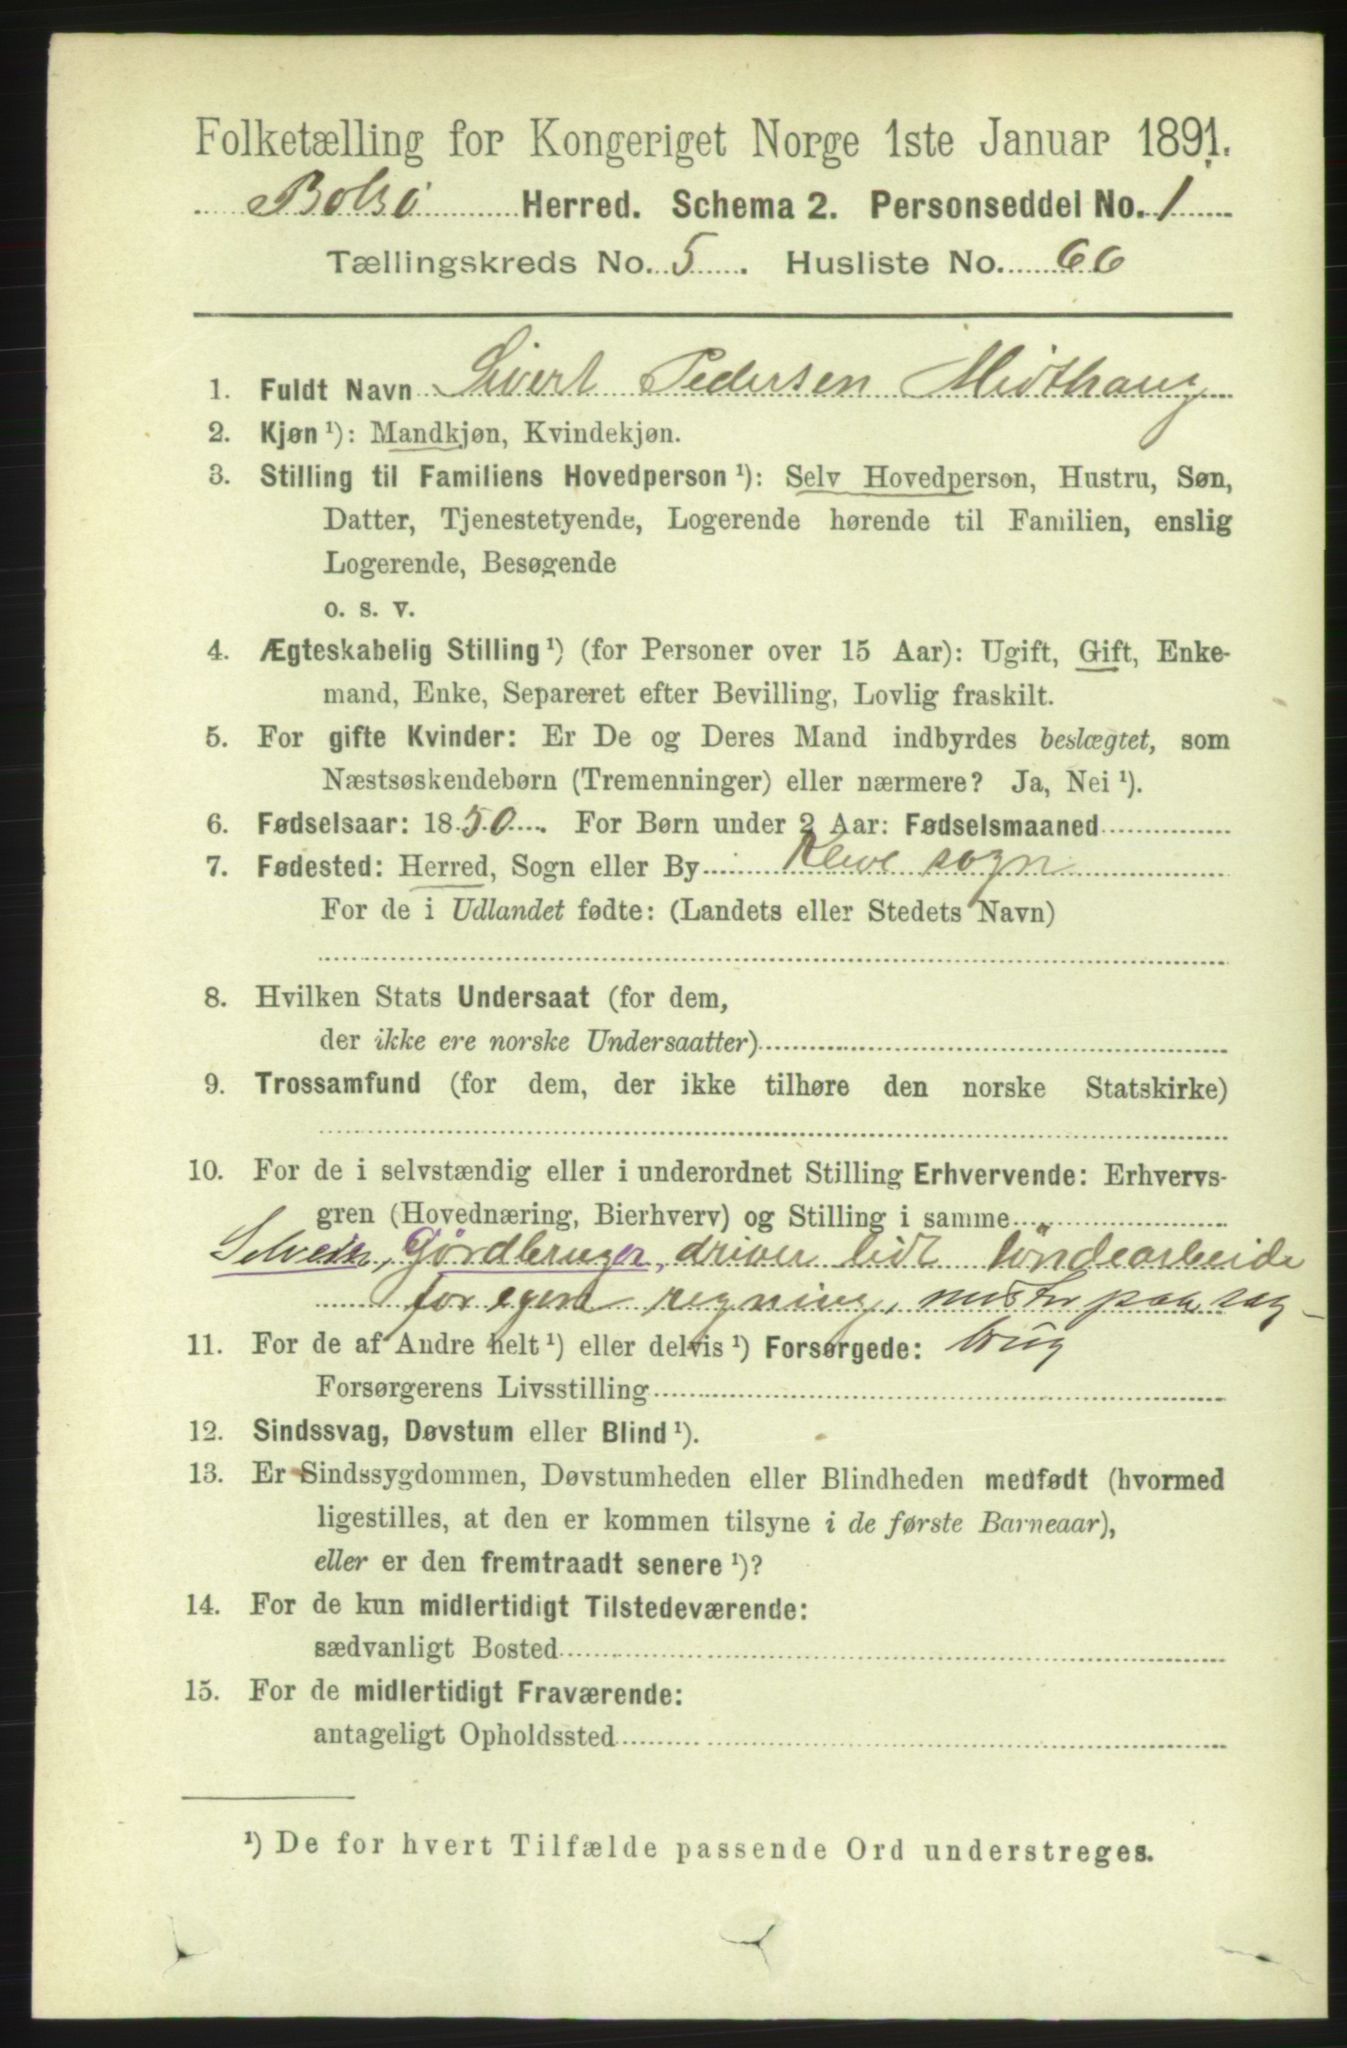 Folketælling for Kongeriget Norge 1ste Januar 1891.
Bolsø Herred. Schema 2. Personseddel No. 1
Tællingskreds No. 5. Husliste No. 66
1. Fuldt Navn Sivert Pedersen Midthaug
2. Kjøn ¹): Mandkjøn, Kvindekjøn.
3. Stilling til Familiens Hovedperson ¹): Selv Hovedperson, Hustru, Søn,
Datter, Tjenestetyende, Logerende hørende til Familien, enslig
Logerende, Besøgende
o. s. v.
4. Ægteskabelig Stilling ¹) (for Personer over 15 Aar): Ugift, Gift, Enke-
mand, Enke, Separeret efter Bevilling, Lovlig fraskilt.
5. For gifte Kvinder: Er De og Deres Mand indbyrdes beslægtet, som
Næstsøskendebørn (Tremenninger) eller nærmere? Ja, Nei ¹).
6. Fødselsaar: 1850. For Børn under 2 Aar: Fødselsmaaned
7. Fødested: Herred, Sogn eller By Kleve sogn
For de i Udlandet fødte: (Landets eller Stedets Navn)
8. Hvilken Stats Undersaat (for dem,
der ikke ere norske Undersaatter)
9. Trossamfund (for dem, der ikke tilhøre den norske Statskirke)
10. For de i selvstændig eller i underordnet Stilling Erhvervende: Erhvervs-
gren (Hovednæring, Bierhverv) og Stilling i samme
Selveier, Gårdbruger, driver lidt töndearbeide
for egen regning, mester paa sag-
brug
11. For de af Andre helt ¹) eller delvis ¹) Forsørgede:
Forsørgerens Livsstilling
12. Sindssvag, Døvstum eller Blind ¹).
13. Er Sindssygdommen, Døvstumheden eller Blindheden medfødt (hvormed
ligestilles, at den er kommen tilsyne i de første Barneaar),
eller er den fremtraadt senere ¹)?
14. For de kun midlertidigt Tilstedeværende:
sædvanligt Bosted
15. For de midlertidigt Fraværende:
antageligt Opholdssted
¹) De for hvert Tilfælde passende Ord understreges.